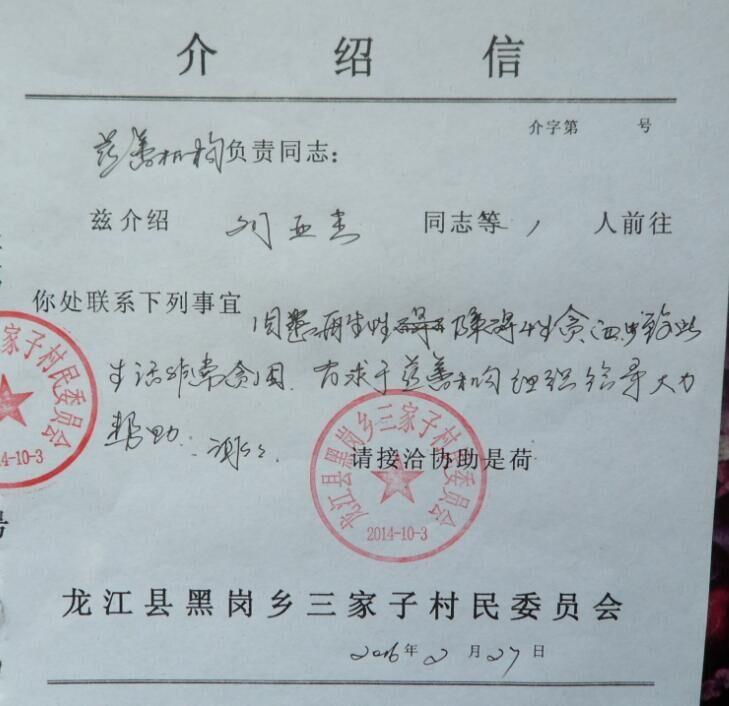 介绍信
介字第 号
慈善机构负责同志：
兹介绍 刘亚杰 同志等 1 人前往
你处联系下列事宜
因患再生性障碍性贫血
生活非常贫困，有求于慈善机构组织给予大力
帮助。谢谢
请接洽协助是荷
龙江县黑岗乡三家子村民委员会
2014-10-3
家子村民委员会
14-10-3
龙江县黑岗乡三家子村民委员会
2016年2月27日